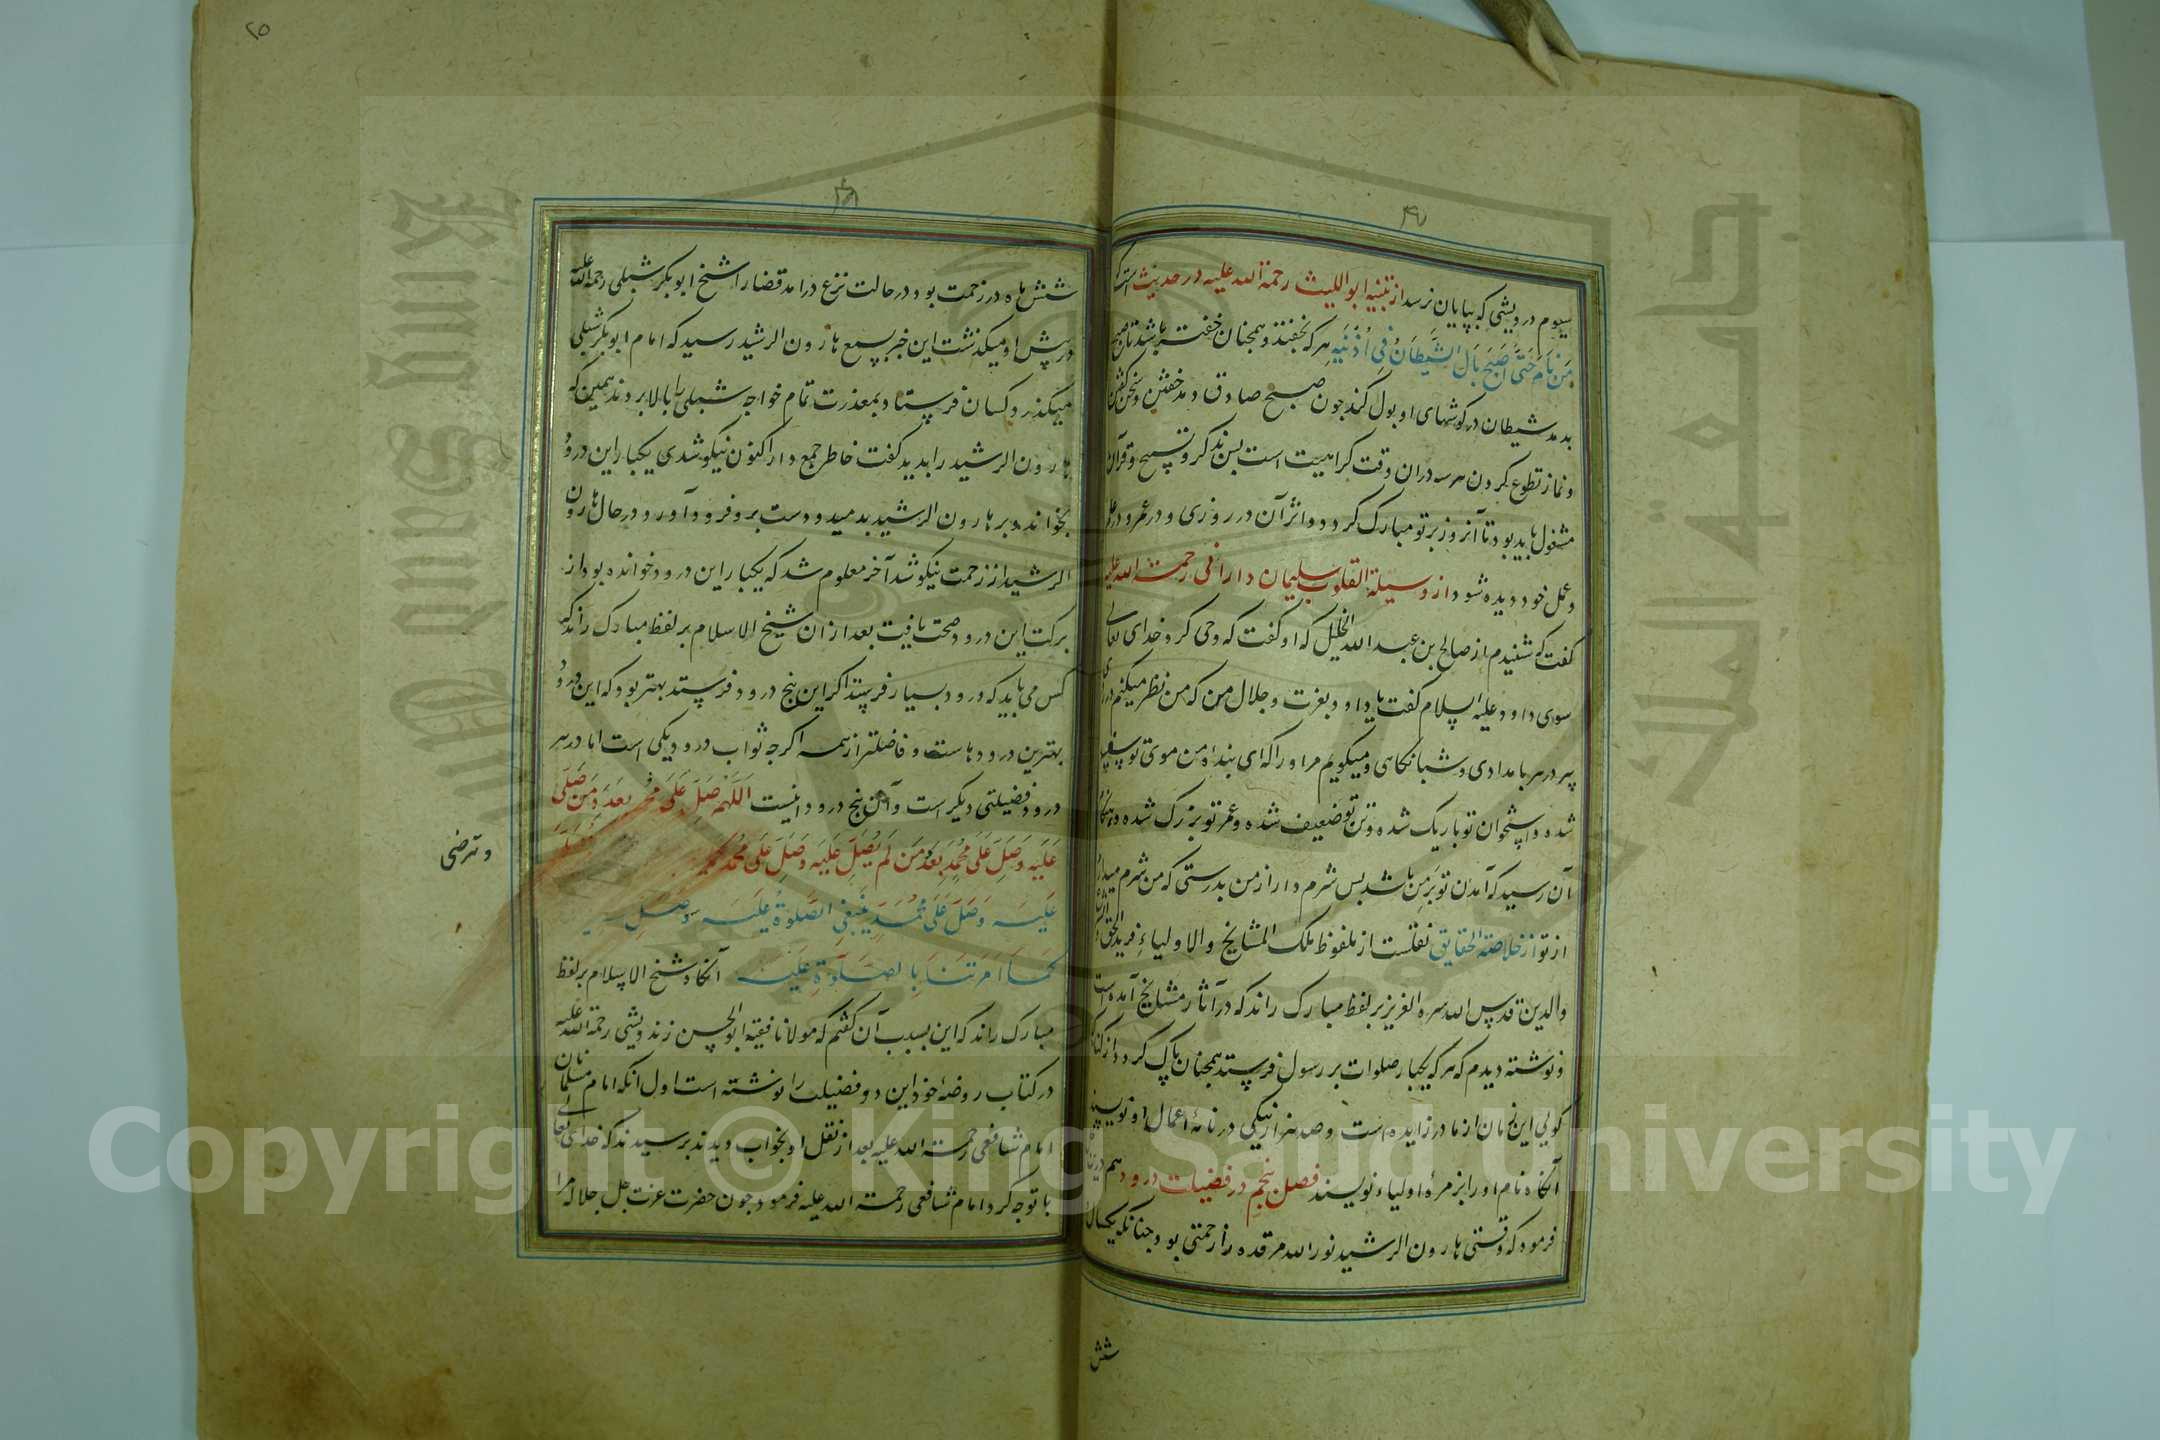 سیوم درویشی که بپایان نرسد از تنبیه ابو اللیث رحمة الله علیه در حدیث است که
مَن نَامَ حَتَّی اَصبَحَ بَالَ الشَّیطَانُ فِی اُذُنَیهِ هر که بخفتد و همچنان خفته باشد تا صبح
بدمد شیطان در کوشهای او بول کند جون صبح صادق دمد خفتن و سخن کفتن
و نماز تطوع کردن هر سه دران وقت کراهیت است بس بذکر و تسبیح و قرآن
مشغول باید بود تا آنروز بر تو مبارک کردد و اثر آن در روزی و در عمر و در علم
و عمل خود دیده شود از وسیلة القلوب سلیمان دارانی رحمة الله علیه
کفت که شنیدم از صالح بن عبد الله الخلیل که او کفت که وحی کرد خدای تعالی
سوی داود علیه السلام کفت یا داود بعزت و جلال من که من نظر میکنم در روی
پیر در هر بامدادی و شبانکاهی و میکویم مر او را که ای بندۀ من موی تو سپید
شده و استخوان تو باریک شده و تن تو ضعیف شده و عمر تو بزرک شده و هنکام
آن رسید که آمدن تو بر من باشد بس شرم دار از من بدرستی که من شرم میدارم
از تو از خلاصة الحقایق نقلست از ملفوظ ملک المشایخ والاولیاء فرید الحق
والدین قدس الله سره العزیز بر لفظ مبارک راند که در آثار مشایخ آمده است
و نوشته دیدم که هر که یکبار صلوات بر رسول فرستد همجنان پاک کردد از کناه
کویی این زمان از مادر زاییده است و صد هزار نیکی در نامۀ اعمال او نویسند
آنکاه نام او را بزمرۀ اولیاء نویسند فصل پنجم در فضیلت درود هم در
فرمود که وقتی هارون الرشید نور الله مرقده را زحمتی بود جنانکه یکسال
شش
شش ماه در زحمت بود در حالت نزع درامد قضارا شیخ ابوبکر شبلی رحمة الله علیه
در پیش او میکذشت این خبر بسمع هارون الرشید رسید که امام ابوبکر شبلی
میکذرد کسان فرستاد بمعذرت تمام خواجه شبلی را بالا بردند همین که
هارون الرشید را بدید کفت خاطر جمع دار اکنون نیکو شدی یکبار این درود
بخواند و بر هارون الرشید بدمید و دست برو فرود آورد در حال هارون
الرشید از زحمت نیکو شد آخر معلوم شد که یکبار این درود خوانده بود از
برکت این درود صحت یافت بعد ازان شیخ الاسلام بر لفظ مبارک راند که
کس می باید که درود بسیار فرستد اکر این پنج درود فرستد بهتر بود که این درود
بهترین درودهاست و فاضلتر از همه اکرجه ثواب درود یکی است اما در هر
درود فضیلتی دیکر است و آن پنج درود اینست اَللّهُمَّ صَلِّ عَلَی مُحَمَّدٍ بِعَدَدِ مَن صَلَّی
عَلَیهِ وَصَلِّ عَلَی مُحَمَّدٍ بِعَدَدِ مَن لَم یُصَلِّ عَلَیهِ وَصَلِّ عَلَی مُحَمَّدٍ کَمَا
و ترضی
عَلَیهِ وَصَلِّ عَلَی مُحَمَّدٍ یَنبَغِی الصَّلوةُ عَلَیهِ وَصَلِّ
کَمَا اَمَرتَنَا بِالصَّلوةِ عَلَیهِ آنکاه شیخ الاسلام بر لفظ
مبارک راند که این بسبب آن کفتم که مولانا فقیه ابو الحسن زندویشی رحمة الله علیه
در کتاب روضۀ خود این دو فضیلت را نوشته است اول انکه امام مسلمانان
امام شافعی رحمة الله علیه بعد از نقل او بخواب دیدند برسیدند که خدای تعالی
با تو جه کرد امام شافعی رحمة الله علیه فرمود جون حضرت عزت جل جلاله مرا
King Saud University
جامعة الملك سعود
1957
Copyright © King Saud University